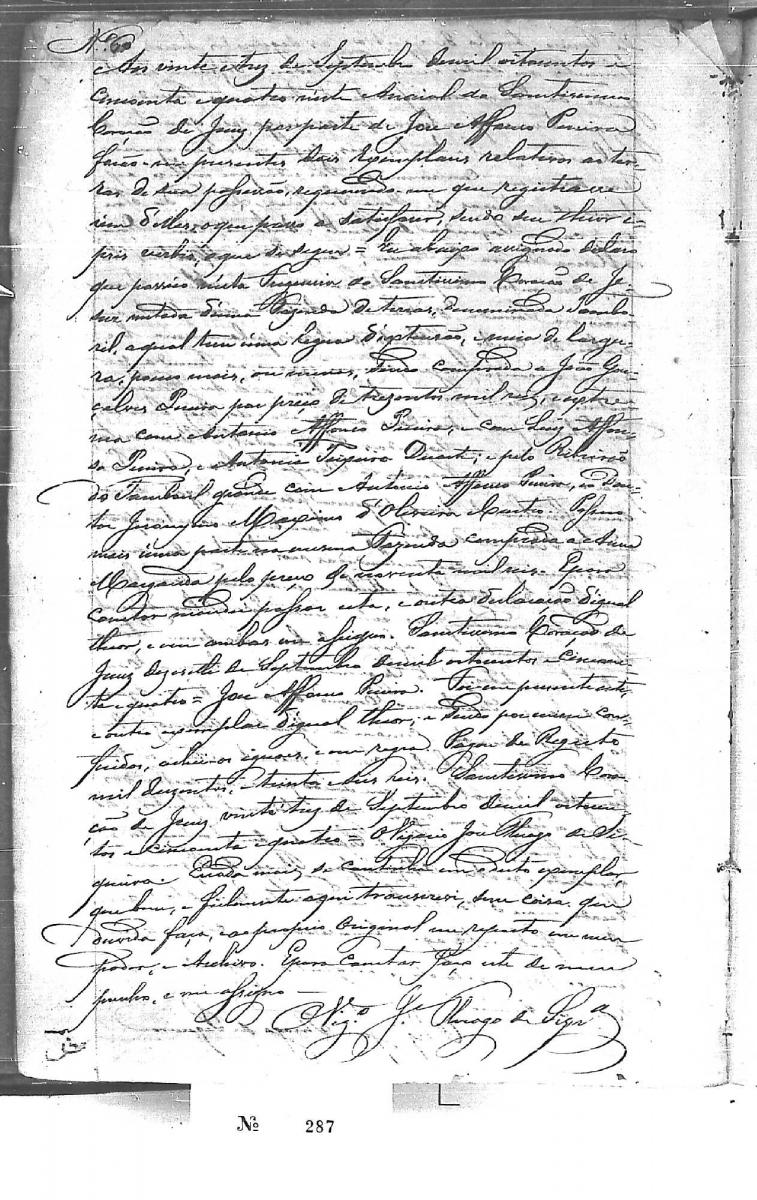 Nº 60
Aos vinte e trez de Septembro de mil oitocentos e
cincoenta e quatro neste Arraial do Santissimo
Coração de Jezuz por parte de Joze Affonso Pereira
forão-me presentes dois exemplares relativos as ter-
ras de sua possessão, requerendo-me que registrace
um d'elles, o que passo a satisfazer, sendo seu theor e
pris verbis, o que se segue = Eu abaixo assignado declaro
que possúo nesta Freguezia do Santissimo Coração de Je-
zuz metade d'uma Fazenda de terras, denominada Tambo-
ril, a qual tem uma legoa d'extensão, e meia de largu-
ra, pouco mais, ou menos, sendo comprada a João Gon-
çalves Pereira por preço de trezentos mil reis, e extre-
ma com Antonio Affonso Pereira, e com Luiz Affon-
so Pereira, e Antonio Teixeira Duarte, e pelo Ribeirão
do Tamboril grande com Antonio Affonso Pereira, e o Dou-
tor Jeronymo Maximo d'Oliveira e Castro. Possuo
mais uma parte na mesma Fazenda comprada a Anna
Margarida pelo preço de noventa mil reis. E para
constar mandei passar esta, e outra declaração d'igual
theor, e em ambas me assigno. Santissimo Coração de
Jezuz dezesete de Septembro de mil oitocentos e cincoen-
ta e quatro = Joze Affonso Pereira. Foi-me presente este,
e outro exemplar d'igual theor, e sendo por mim con-
feridos, achei-os iguaes, e em regra. Pagou de Registo
mil duzentos, e trinta e seis reis. Santissimo Cora-
ção de Jezuz vinte e trez de Septembro de mil oitocen-
tos e cincoenta e quatro = O Vigario Joze Thiago de Si-
queira. E nada mais se continha em o dito exemplar,
que bem, e fielmente aqui transcrevi, sem coisa que
duvida faça, e ao proprio Original me reporto em meu
poder, e Archivo. E para constar faço este de meu
punho, e me assigno
Vig.º J.e Thiago de Siqr.a
Nº 287